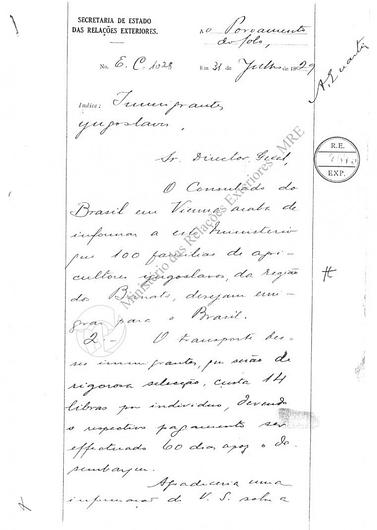 SECRETARIA DE ESTADO
DAS RELAÇÕES EXTERIORES.
AO Povoamento
do Solo,
No. E.C. 1028
Em 31 de Julho de 1929
Indice: Immigrantes
yugoslavos.
R.E.
EXP.
Sr. Director Geral,
O Consulado do
Brasil em Vienna acaba de
informar a este Ministerio
que 100 familias de agri-
cultores yugoslavos, da região
do Banato, desejam emi-
grar para o Brasil.
2.- O transporte des-
ses immigrantes, que serão de
rigorosa selecção, custa 14
libras por individuo, devendo
o respectivo pagamento ser
effectuado 60 dias após o de-
sembarque.
Agradeceria uma
informação de V. S. sobre a
Ministério das Relações Exteriores - MRE